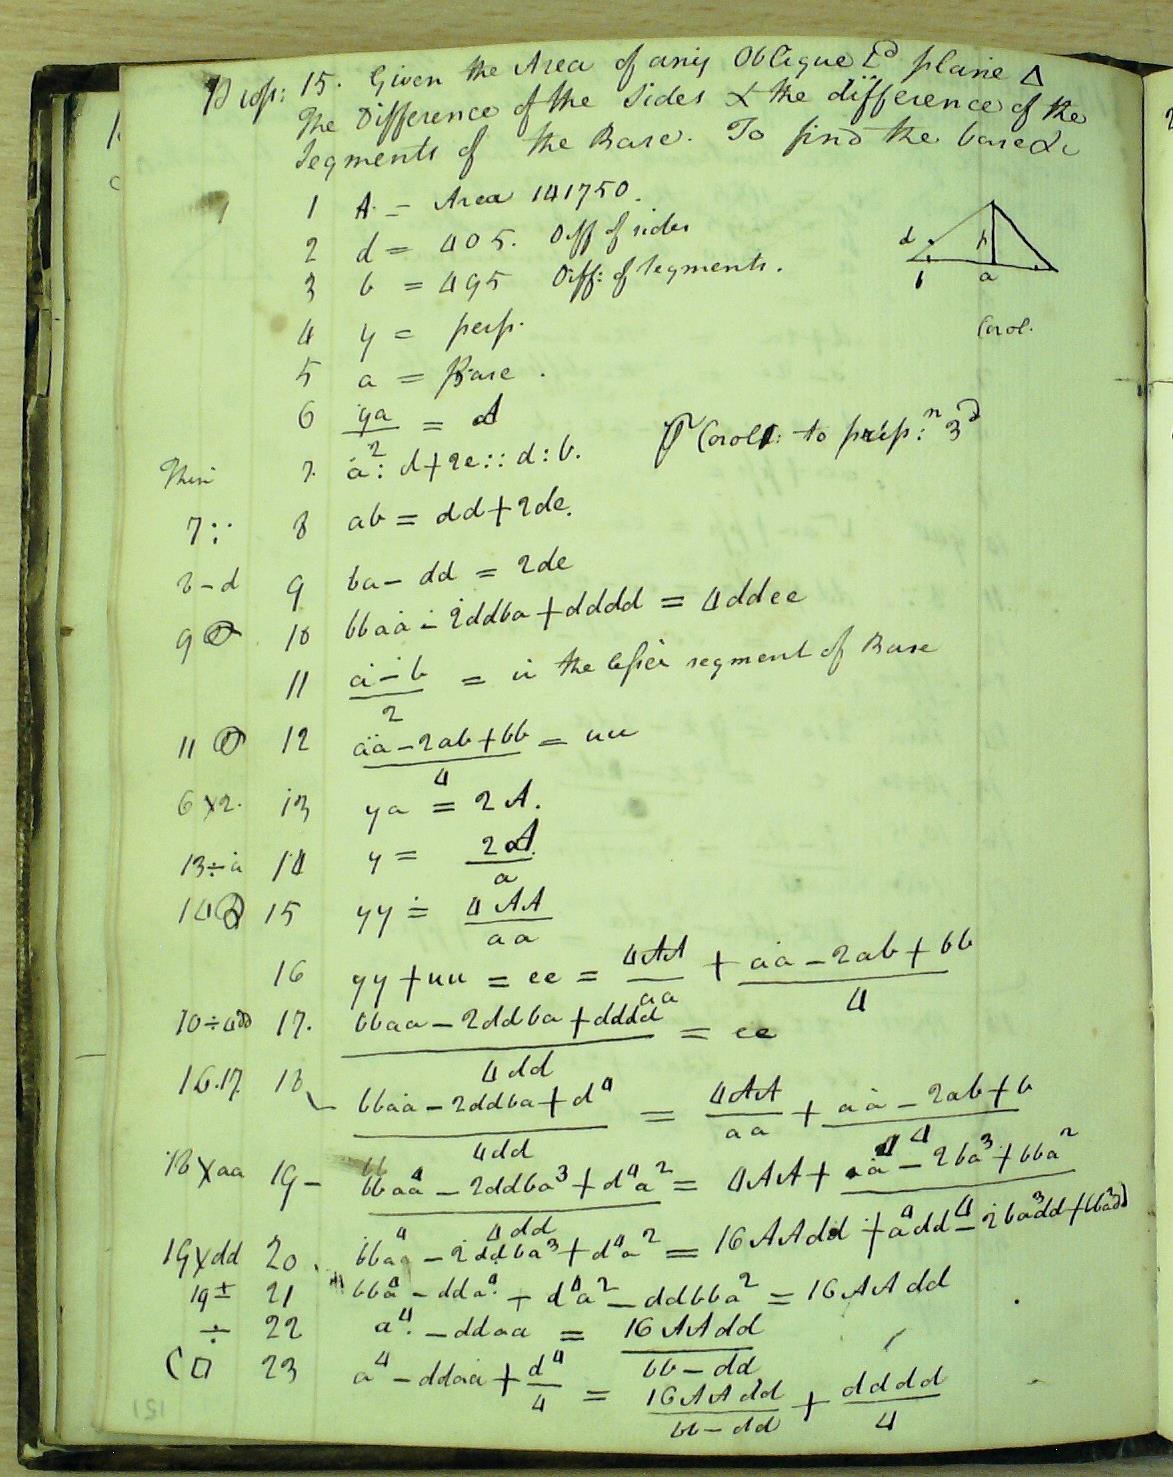 Prop: 15. Given the Area of any Oblique L^d plane Δ
The Difference of the Sides & the difference of the
Segments of the Base. To find the base &c
1 A = Area 141750.
2 d = 405. Diff of sides
3 b = 495 Diff: of Segments.
d b a
4 y = perp.
Corol.
5 a = Base.
6 ya/2 = A
Corol: to prop:^n 3^d
Then 7. a : d+2e :: d : b.
7 :: 8 ab = dd+2de.
8-d 9 ba - dd = 2de
9 10 bbaa - 2ddba + dddd = 4ddee
11 a-b/2 = u the lesser segment of Base
11 12 aa-2ab+bb/4 = uu
6×2. 13 ya = 2A.
13÷a 14 y = 2A/a
14 15 yy = 4AA/aa
16 yy+uu = ee = 4AA/aa + aa-2ab+bb/4
10÷4dd 17. bbaa-2ddba+dddd/4dd = ee
16.17 18 bbaa-2ddba+d^4/4dd = 4AA/aa + aa-2ab+b/4
18×aa 19 - bba^4-2ddba^3+d^4a^2/4dd = 4AA + a^4-2ba^3+bba^2/4
19×dd 20. bba^4-2ddba^3+d^4a^2 = 16AAdd + a^4dd-2ba^3dd+bba^2dd
19± 21 bba^4-dda^4+d^4a^2-ddbba^2 = 16AAdd
÷ 22 a^4.-ddaa = 16AAdd/bb-dd
C□ 23 a^4-ddaa+d^4/4 = 16AAdd/bb-dd + dddd/4
151